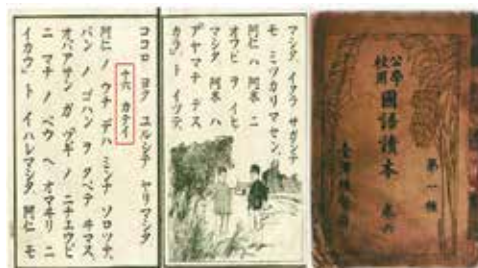 公學
校用
國語讀本
卷六
第一種
臺灣總督府
マシタ。イクラ サガシテ
モ ミツカリマセン。
阿仁ハ 阿木 ニ
オワビ ヲ イヒ
マシタ。阿木 ハ
「アヤマチ デス
カラ。」ト イツテ、
ココロ ヨク ユルシテ ヤリマシタ。
十六 カテイ
阿仁 ノ ウチ デハ ミンナ ソロツテ、
バン ノ ゴハン ヲ タベテ ヰマス。
オバアサン ガ 「ツギ ノ ニチエウビ
ニ マチ ノ ベウ ヘ オマヰリ ニ
イカウ。」ト イハレマシタ。阿仁 モ